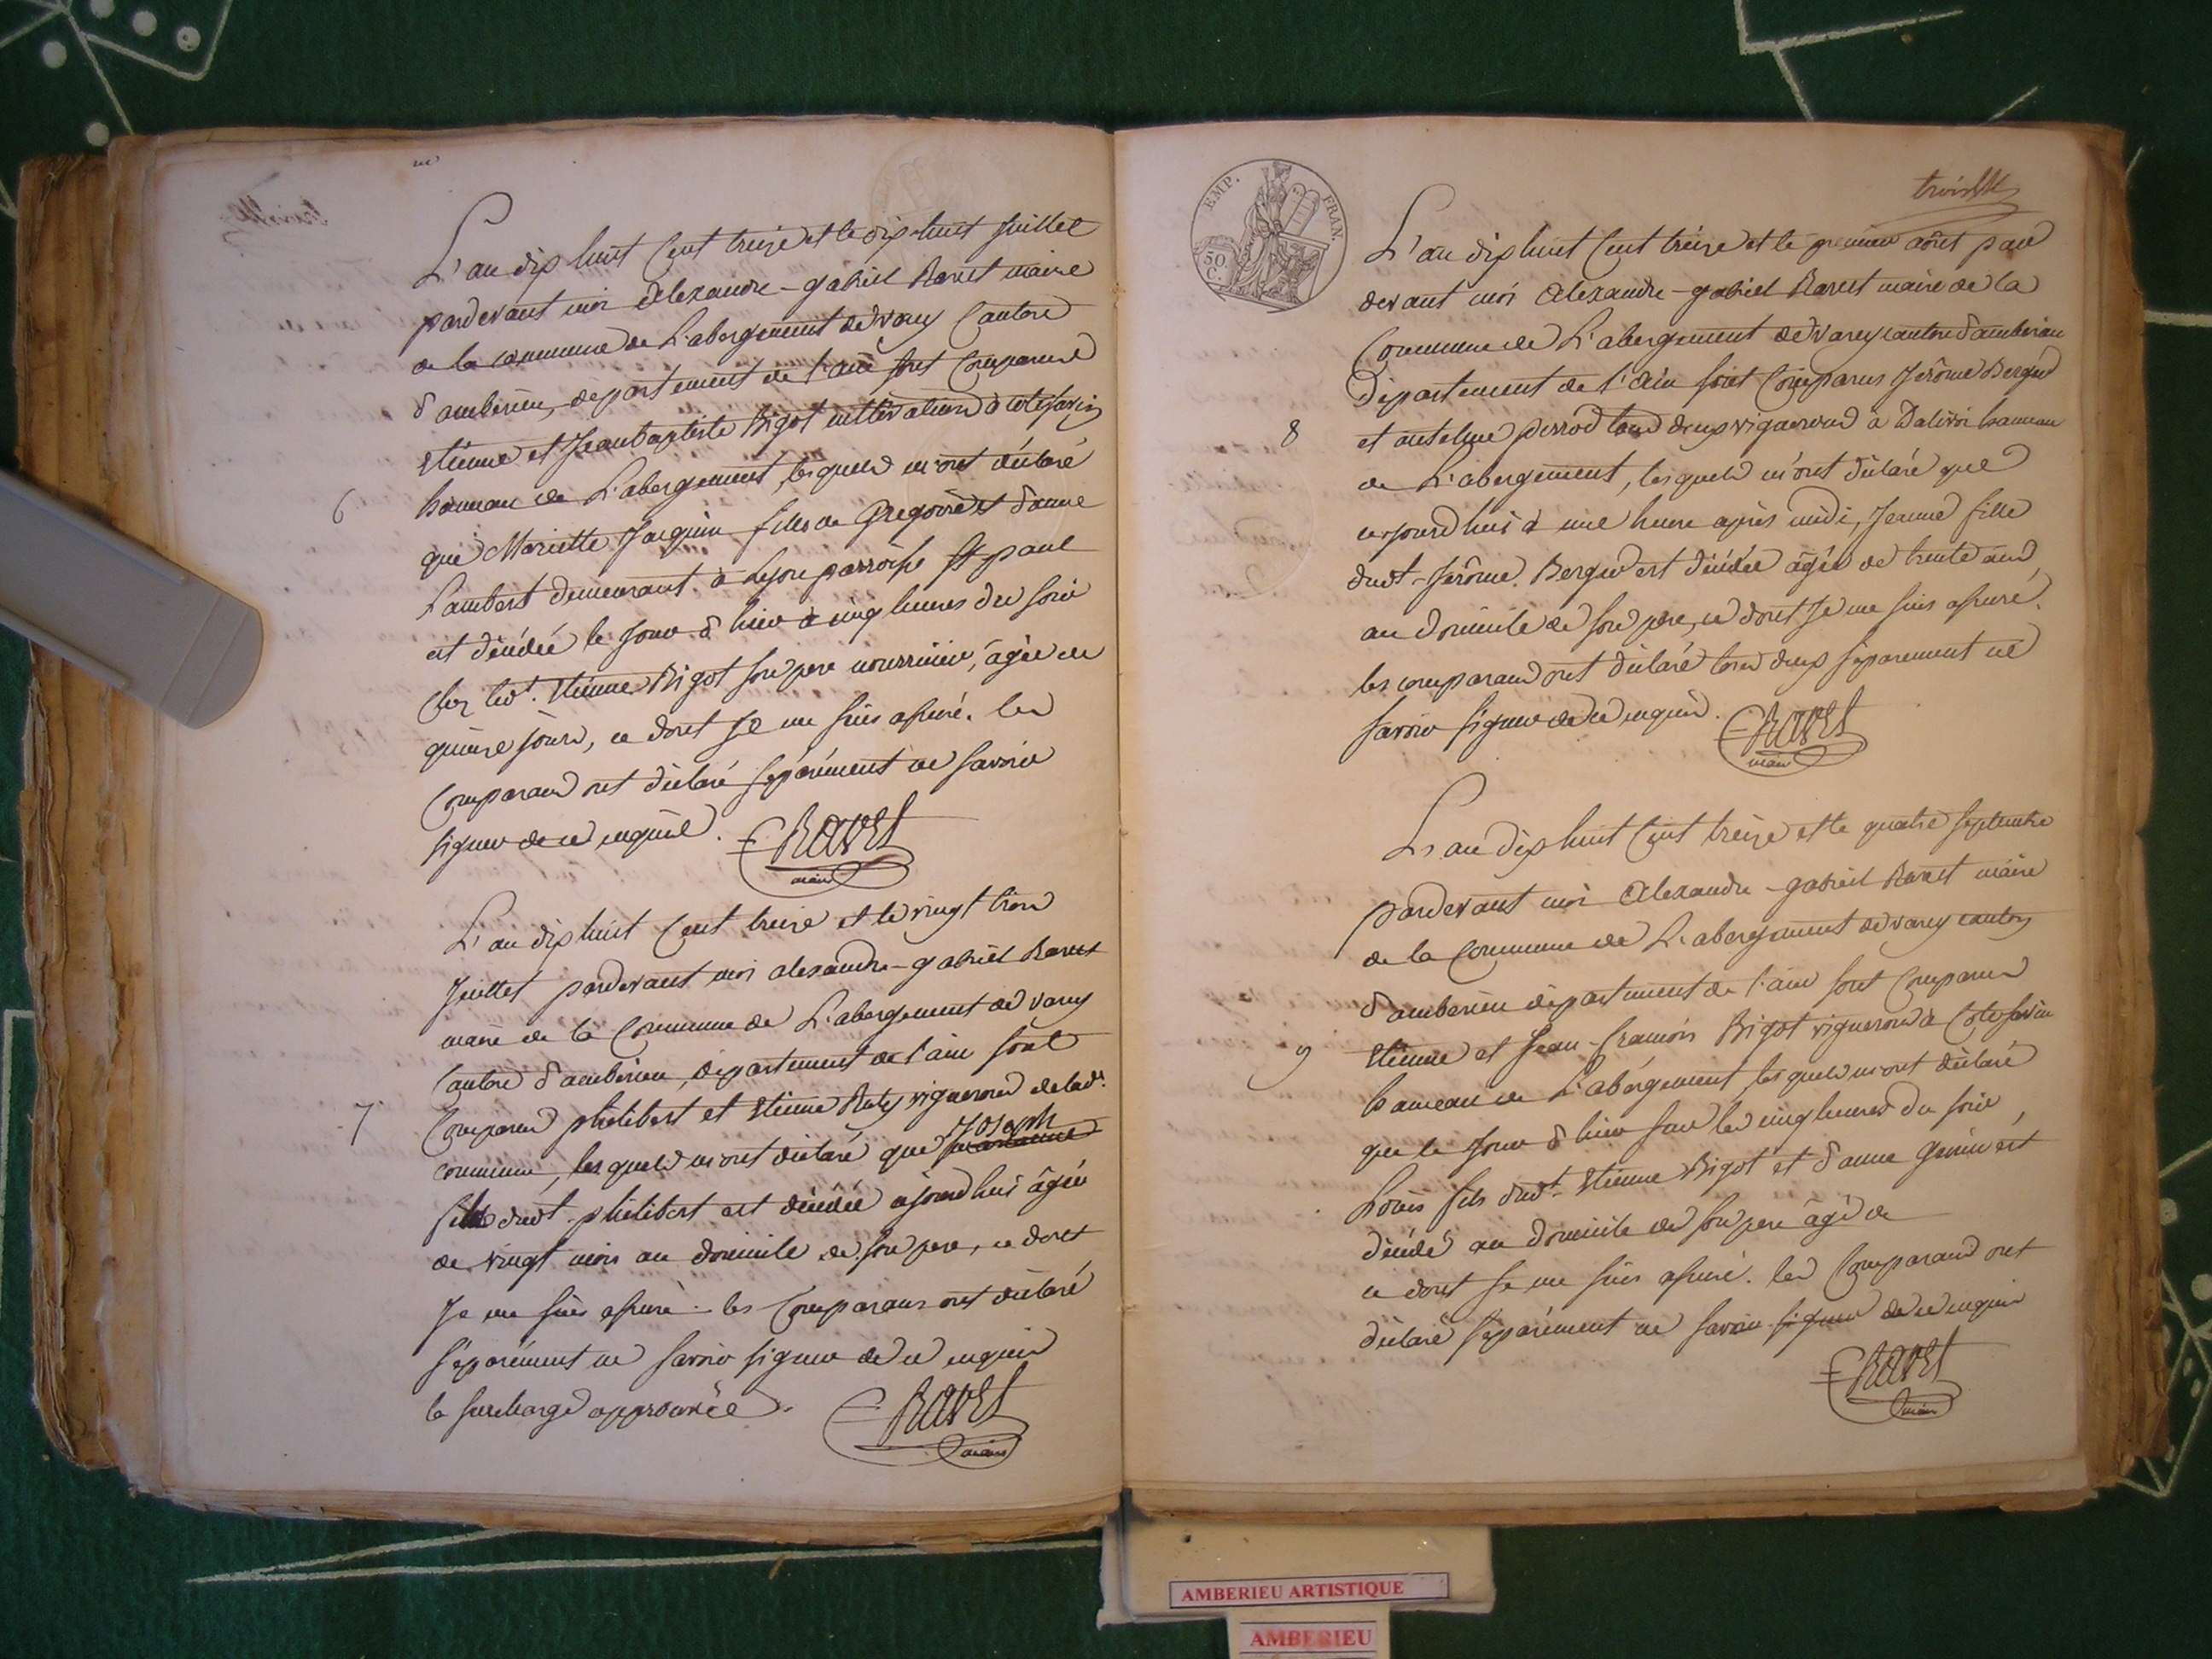 L'an dix huit Cent treize et le dix-huit Juillet
pardevant moi Alexandre-gabriel Ravet maire
de la commune de L'abergement de varey Canton
d'ambérieu, département de l'ain sont Comparus
Etienne et Jean baptiste Bigot cultivateurs à cotesavin
hameau de L'abergement, lesquels m'ont déclaré
6
que Mariette Jacquin fille de Gregoire et d'anne
Lambert demeurant à Lyon parroisse St paul
est décédée le jour d'hier à cinq heures du soir
chez led.t Etienne Bigot son pere nourricier, âgée de
quinze jours, ce dont Je me suis assuré. les
Comparans ont déclaré séparément ne savoir
signer de ce enquis.
Ravet
maire
L'an dix huit Cent treize et le vingt trois
Juillet pardevant moi alexandre-gabriel Ravet
maire de la Commune de L'abergement de varey
Canton d'ambérieu, département de l'ain sont
7
Comparus philibert et Etienne vignerons de lad.e
Joseph
commune, lesquels m'ont déclaré que
fils dud.t philibert est décédée ajourdhui âgée
de vingt mois au domicile de son pere, ce dont
Je me suis assuré. les Comparans ont déclaré
séparément ne savoir signer de ce enquis
la surcharge approuvée.
Ravet
maire
EMP. FRAN.
50 C.
L'an dix huit Cent treize et le premier aôut par
devant moi Alexandre-gabriel Ravet maire de la
Commune de L'abergement de varey canton d'ambérieu
Département de l'Ain sont Comparus Jérôme Berger
8
et anselme perrod tous deux vignerons à Dalivoi hameau
de L'abergement, lesquels m'ont déclaré que
cejourdhui à une heure après midi, Jeanne fille
dud.t Jérôme Berger est décédée âgée de trente ans,
au domicile de son pere, ce dont Je me suis assuré.
les comparans ont déclaré tous deux séparement ne
savoir signer de ce enquis.
Ravet
maire
L'an dix huit Cent treize et le quatre septembre
pardevant moi Alexandre-gabriel Ravet maire
de la Commune de L'abergement de varey canton
d'ambérieu département de l'ain sont Comparus
9
Etienne et Jean-francois Bigot vignerons à Cotesavin
hameau de L'abergement, lesquels m'ont déclaré
que le Jour d'hier sur les cinq heures du soir,
Louis fils dud.t Etienne Bigot et d'anne est
décédé au domicile de son pere âgé de
ce dont Je me suis assuré. les Comparans ont
déclaré séparément ne savoir signer de ce enquis
Ravet
maire
AMBERIEU ARTISTIQUE
AMBERIEU